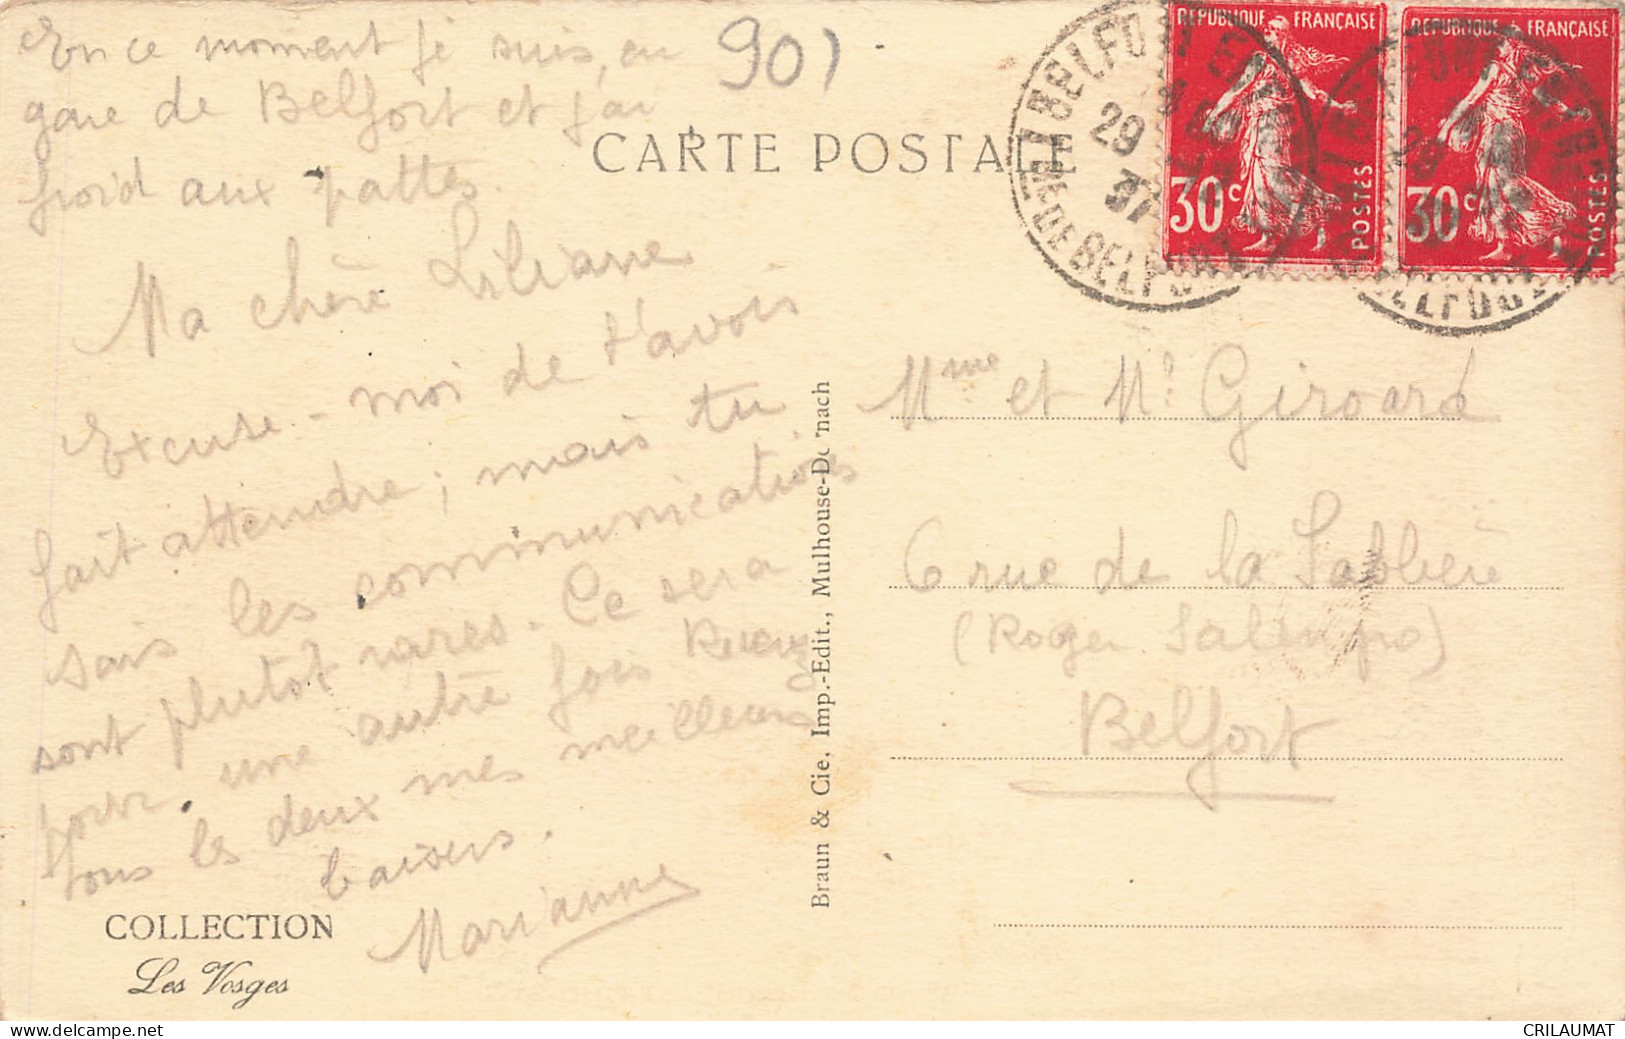 En ce moment je suis, en
gare de Belfort et j'ai
froid aux pattes.
901
CARTE POSTALE
REPUBLIQUE FRANÇAISE
30c
POSTES
REPUBLIQUE FRANÇAISE
30c
POSTES
BELFORT
29
37
DE BELFORT
Ma chère Liliane
Excuse-moi de t'avoir
fait attendre; mais tu
sais les communications
sont plutôt rares. Ce sera
pour une autre fois Recevez
tous les deux mes meilleurs
baisers.
Marianne
COLLECTION
Les Vosges
Braun & Cie, Imp.-Edit., Mulhouse-Dornach
Mme et Mr Giroard
6 rue de la Sablière
(Roger Salengro)
Belfort
delcampe.net
CRILAUMAT